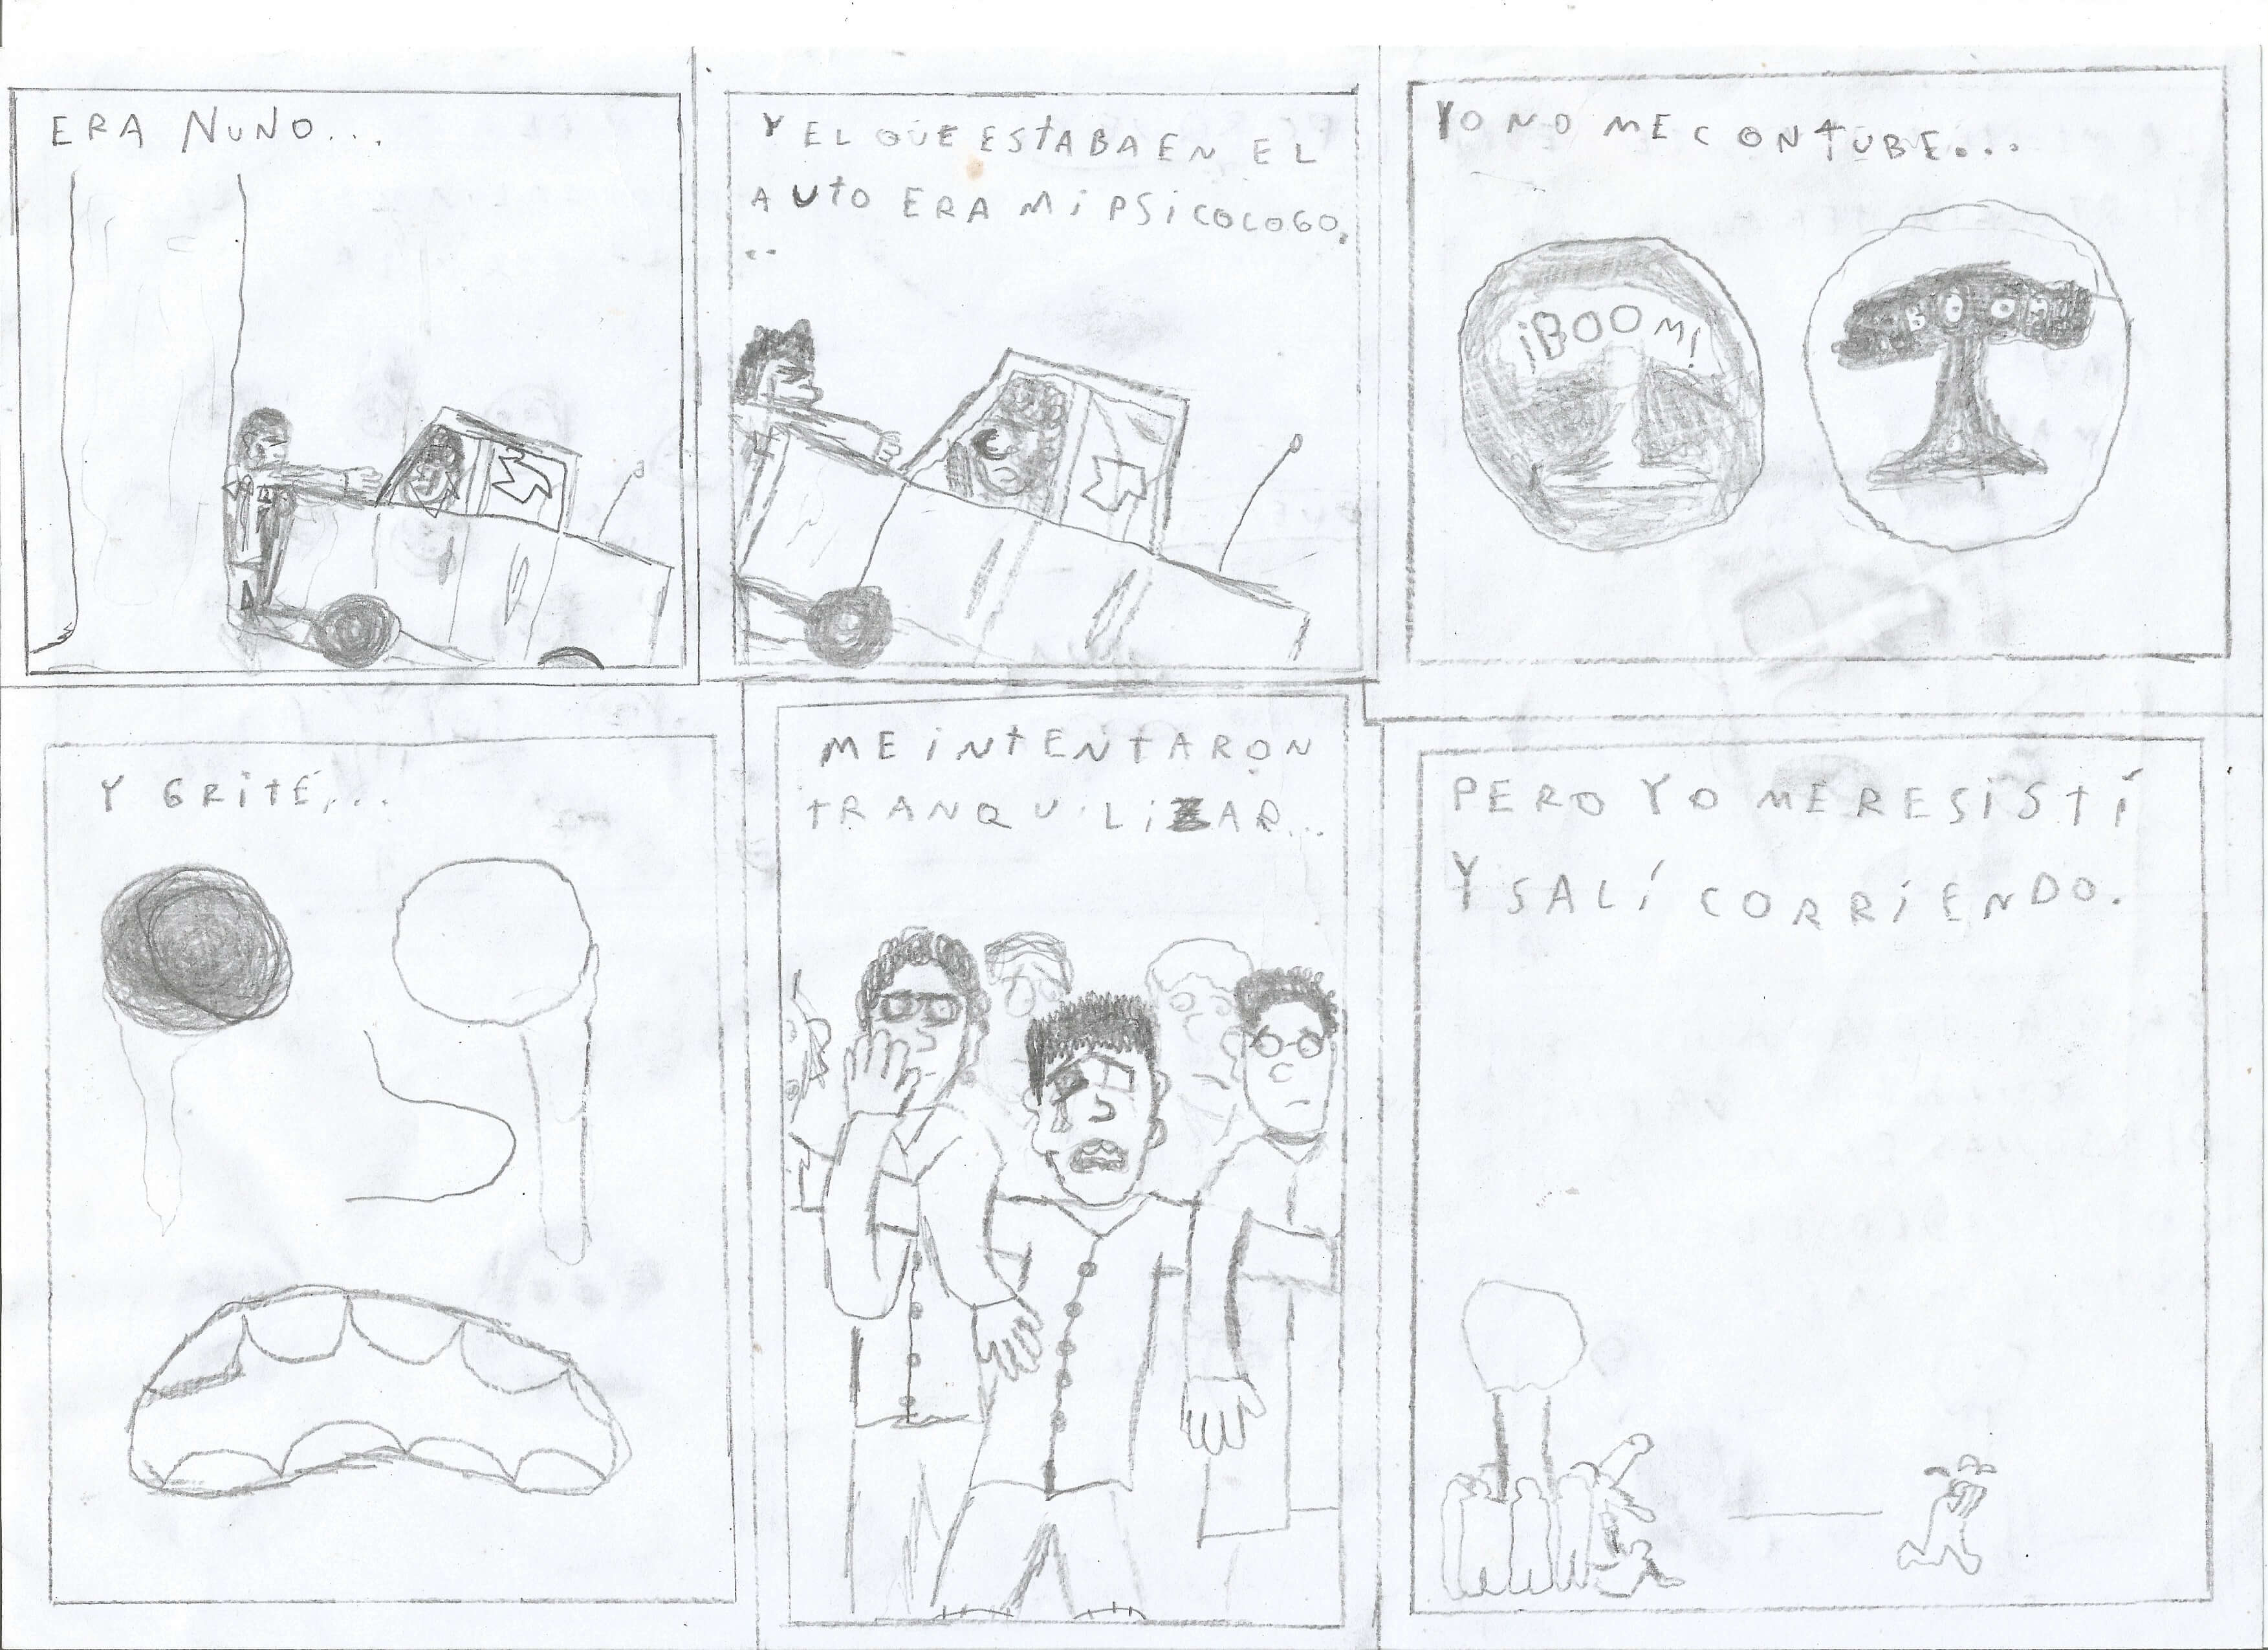 ERA NUNO...
Y EL QUE ESTABA EN EL
AUTO ERA MI PSICOLOGO.
..
YO NO ME CONTUBE...
¡BOOM!
BOOM
Y GRITÉ...
ME INTENTARON
TRANQUILIZAR...
PERO YO ME RESISTÍ
Y SALÍ CORRIENDO.